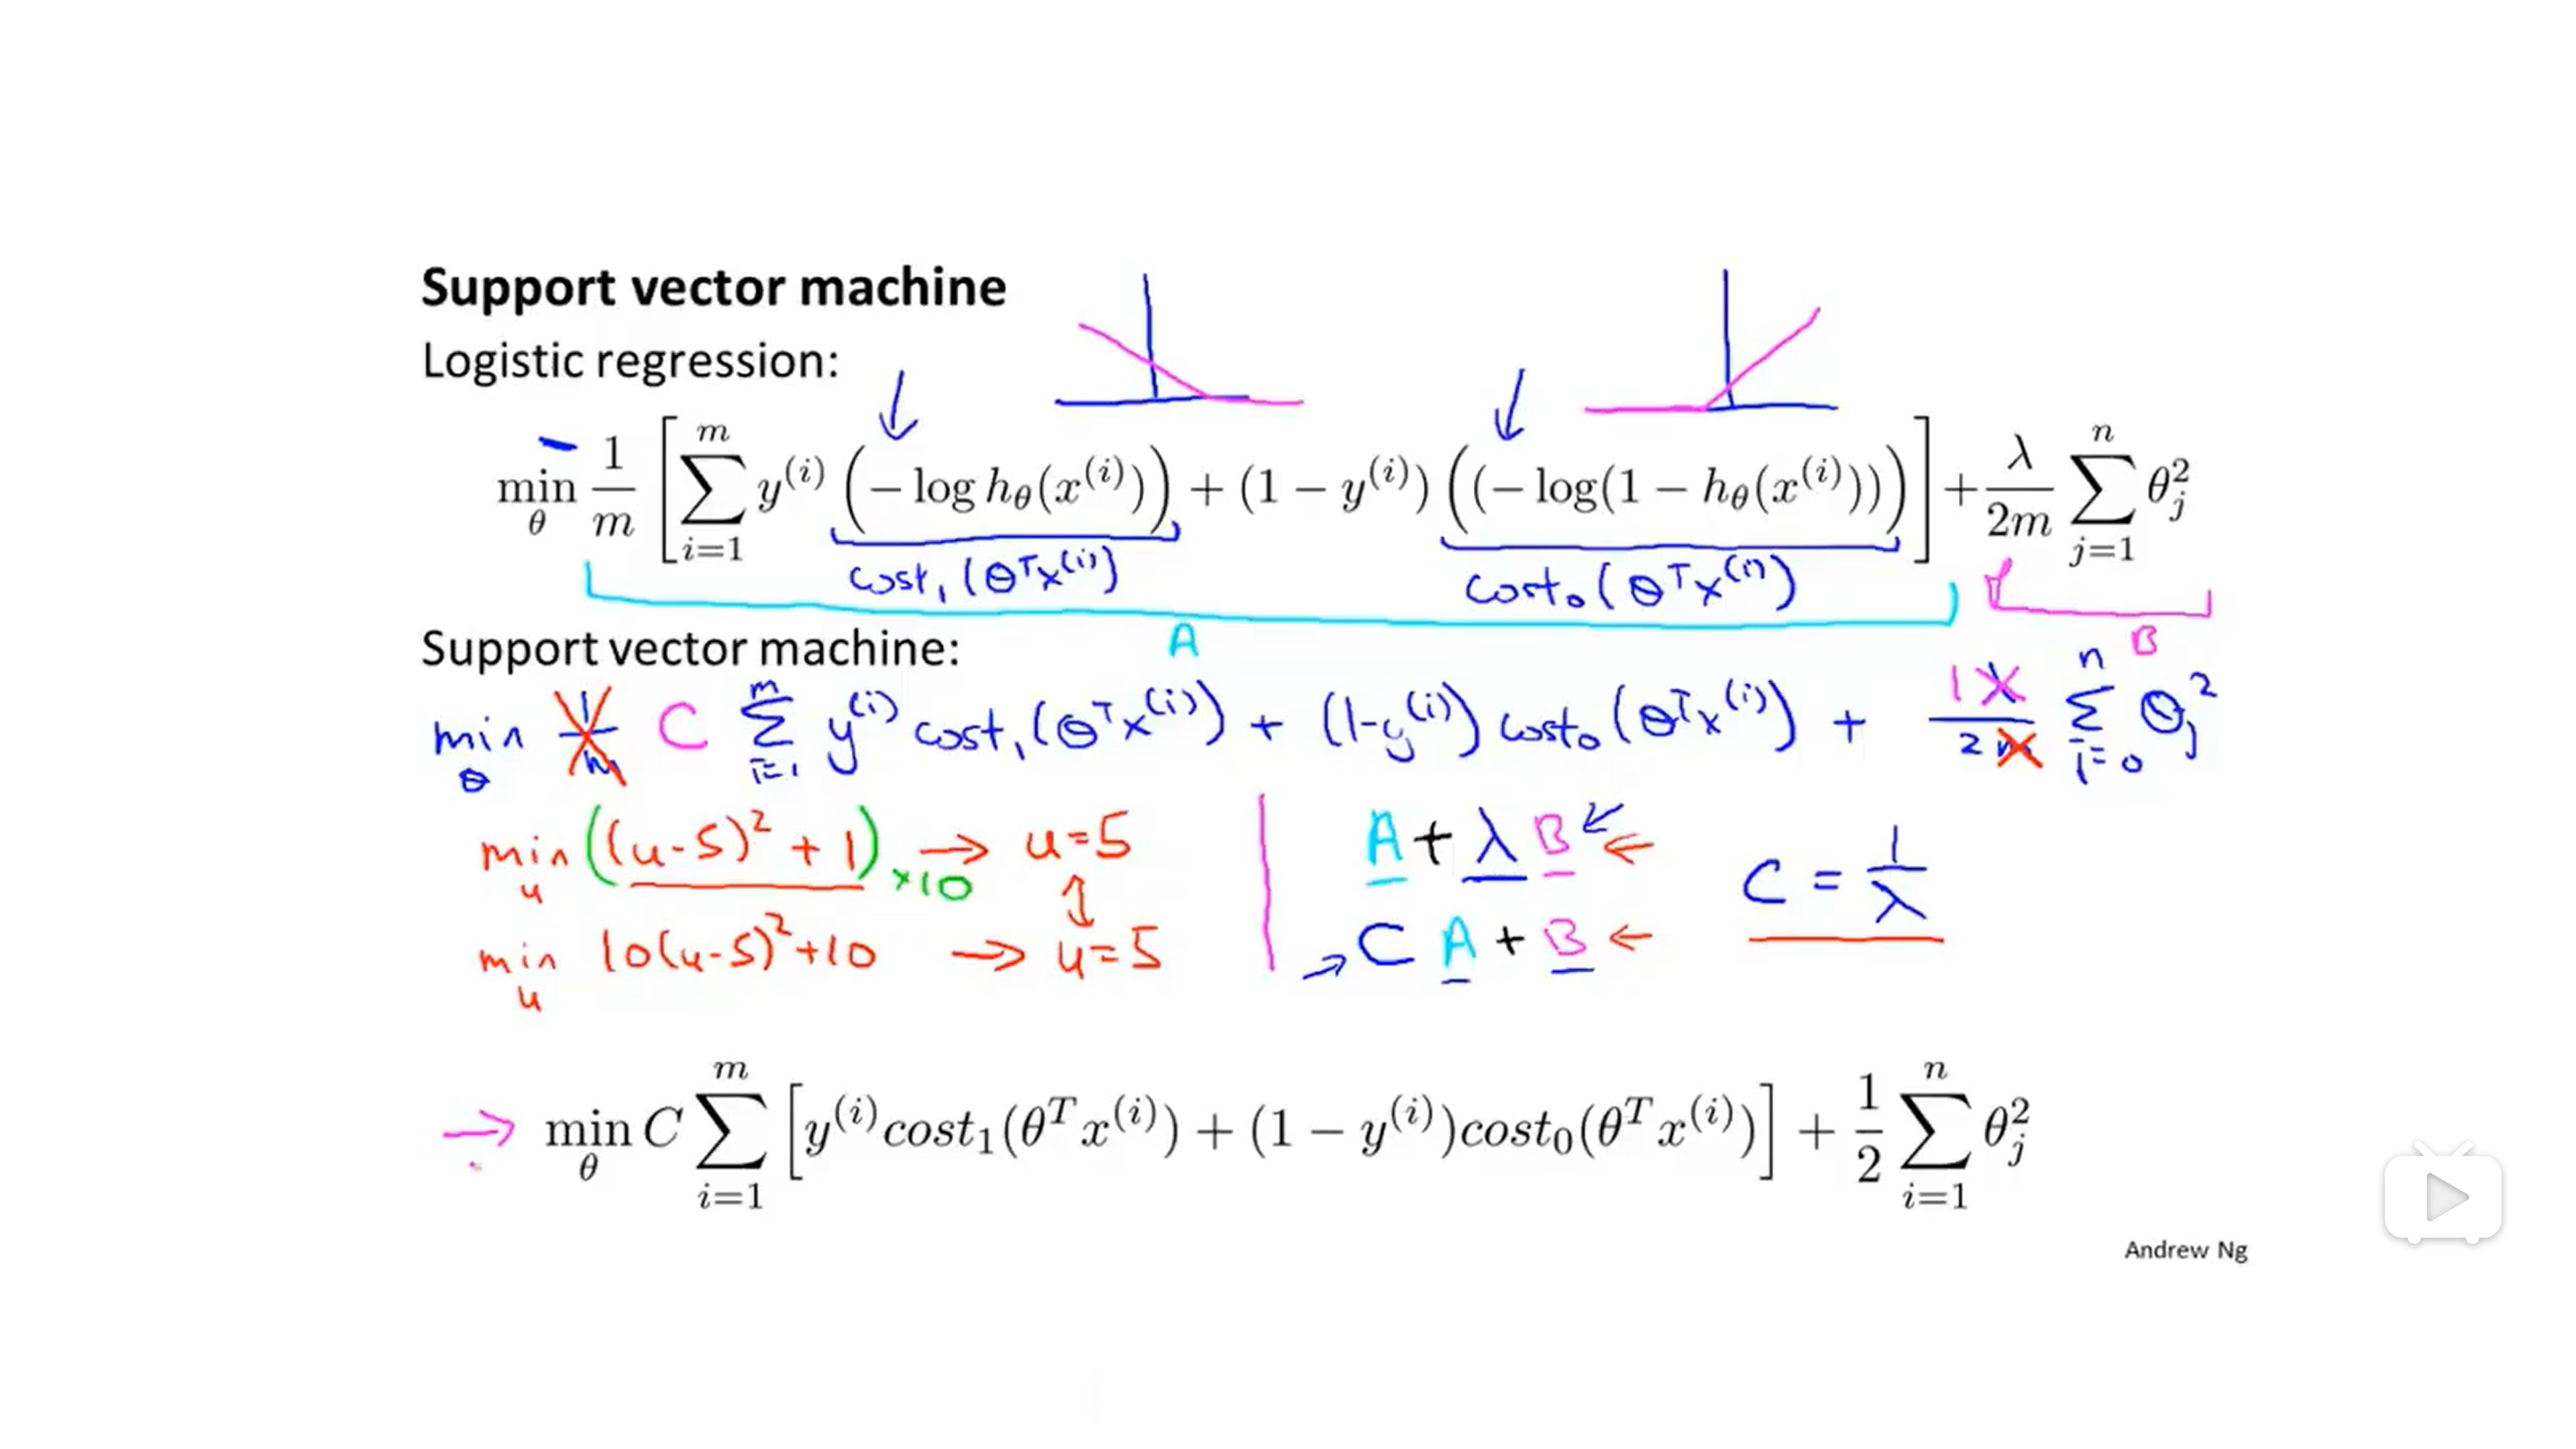 Support vector machine
Logistic regression:
min_θ 1/m [ ∑_{i=1}^{m} y^{(i)} (− log h_θ(x^{(i)})) + (1 − y^{(i)}) ((− log(1 − h_θ(x^{(i)}))) ] + λ/2m ∑_{j=1}^{n} θ_j^2
cost_1 (θ^T x^{(i)}) cost_0 (θ^T x^{(i)})
A B
Support vector machine:
min_θ 1/m C ∑_{i=1}^{m} y^{(i)} cost_1 (θ^T x^{(i)}) + (1-y^{(i)}) cost_0 (θ^T x^{(i)}) + 1 λ/2m ∑_{i=0}^{n} θ_j^2
min_u ((u-5)^2 + 1) ×10 → u=5
min_u 10(u-5)^2+10 → u=5
A + λ B ←
→ C A + B ←
C = 1/λ
→ min_θ C ∑_{i=1}^{m} [ y^{(i)} cost_1(θ^T x^{(i)}) + (1 − y^{(i)}) cost_0(θ^T x^{(i)}) ] + 1/2 ∑_{i=1}^{n} θ_j^2
Andrew Ng